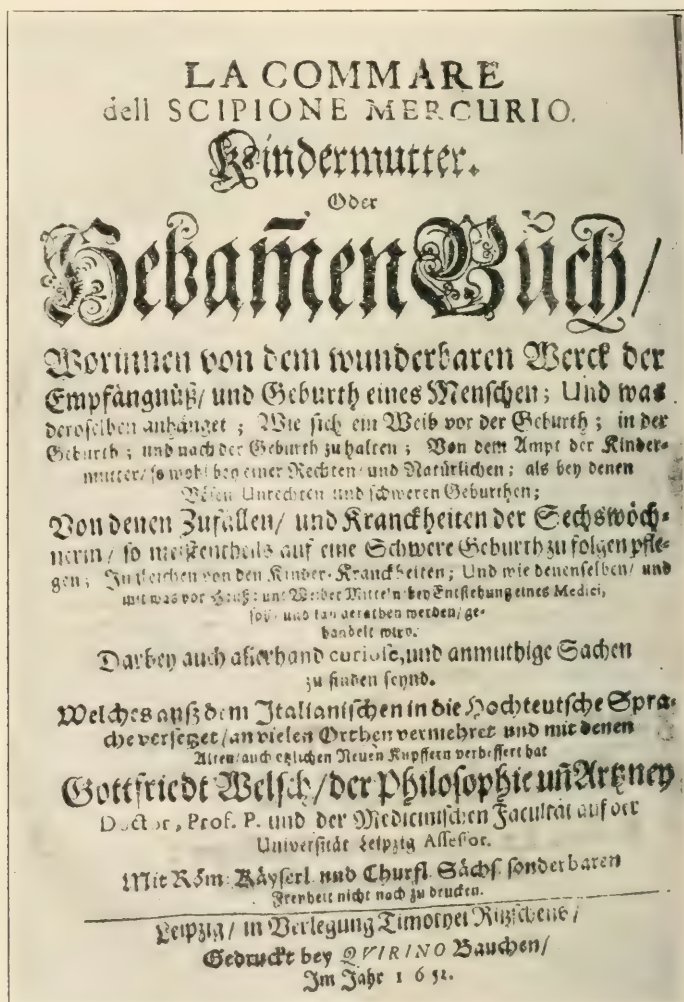 LA COMMARE
dell SCIPIONE MERCURIO.
Kindermutter.
Oder
Hebam̃en Bůch/
Worinnen von dem wunderbaren Werck der
Empfängnüß/ und Geburth eines Menschen; Und was
deroselben anhänget ; Wie sich ein Weib vor der Geburth ; in der
Geburth ; und nach der Geburth zu halten ; Von dem Ampt der Kinder-
mutter/ so wohl bey einer Rechten/ und Natürlichen; als bey denen
Bösen Unrechten und schweren Geburthen;
Von denen Zufällen/ und Kranckheiten der Sechswöch-
nerin/ so meistentheils auf eine Schwere Geburth zu folgen pfle-
gen; Ingleichen von den Kinder-Kranckheiten; Und wie denenselben/ und
mit was vor Hauß- und Weiber Mitteln bey Entstehung eines Medici,
soll und kan gerathen werden/ ge-
handelt wird.
Darbey auch allerhand curiose, und anmuthige Sachen
zu finden seynd.
Welches auß dem Italianischen in die Hochteutsche Spra-
che versetzet/ an vielen Orthen vermehret und mit denen
Alten/ auch etzlichen Neuen Kupffern verbessert hat
Gottfriedt Welsch/ der Philosophie uñ Artzney
Doctor, Prof. P. und der Medicinischen Facultät auf der
Universität Leipzig Assessor.
Mit Röm: Käyserl. und Churfl. Sächs. sonderbaren
Freyheit nicht nach zu drucken.
Leipzig/ in Verlegung Timothei Ritzschens/
Gedruckt bey QVIRINO Bauchen/
Im Jahr 1652.